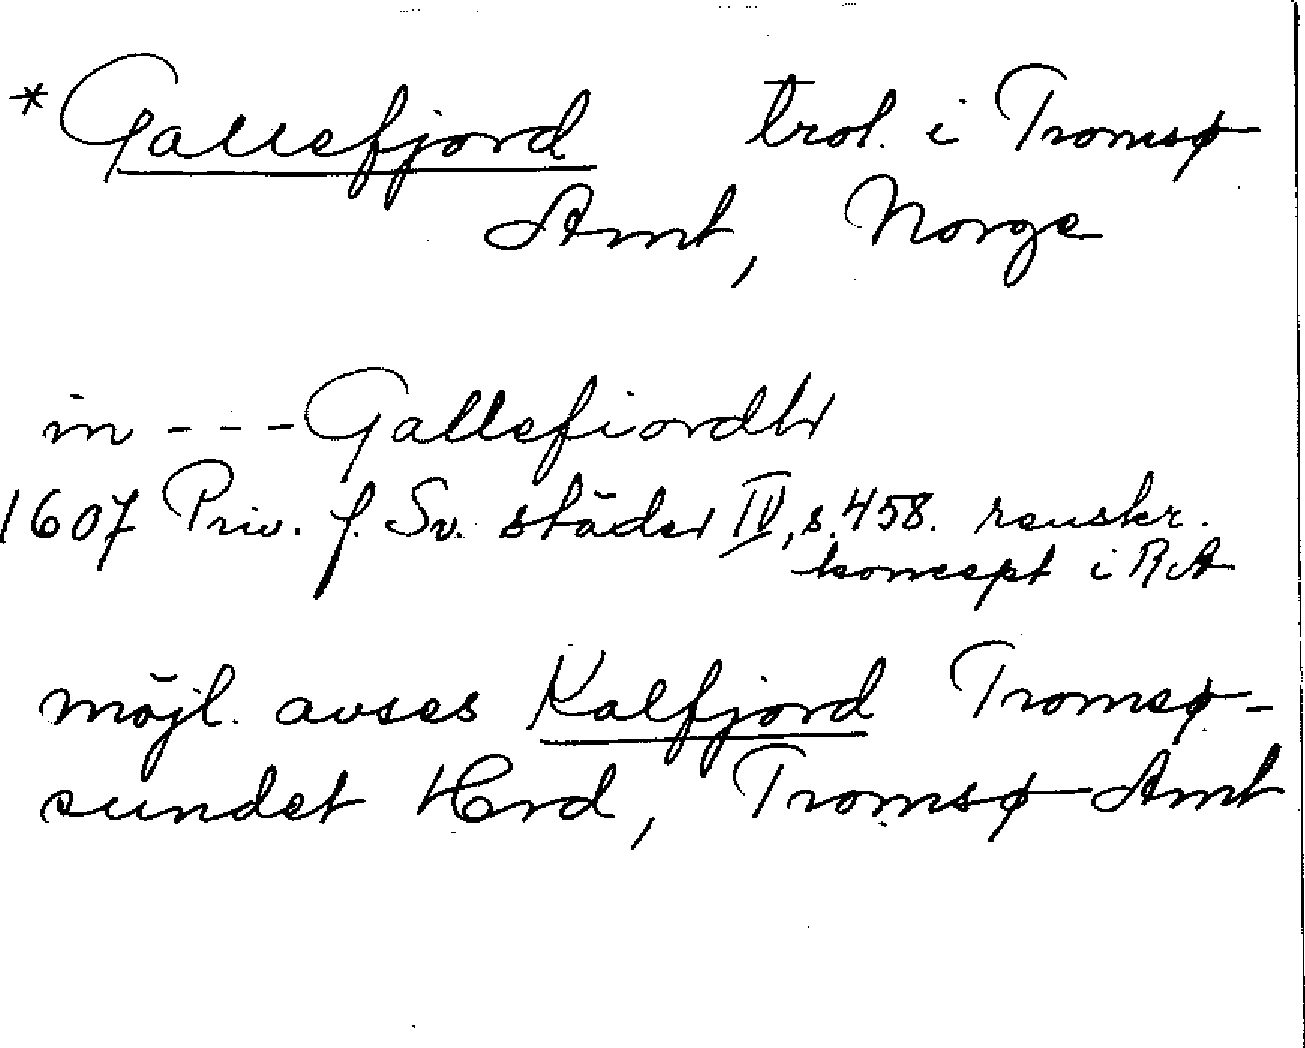 *Gallefjord trol. i Tromsø
Amt, Norge
in - - - Gallefiordhr
1607 Priv. f. Sv. städer IV, s. 458. renskr.
koncept i RA
möjl. avses Kalfjord Tromsø-
sundet Hrd, Tromsø Amt